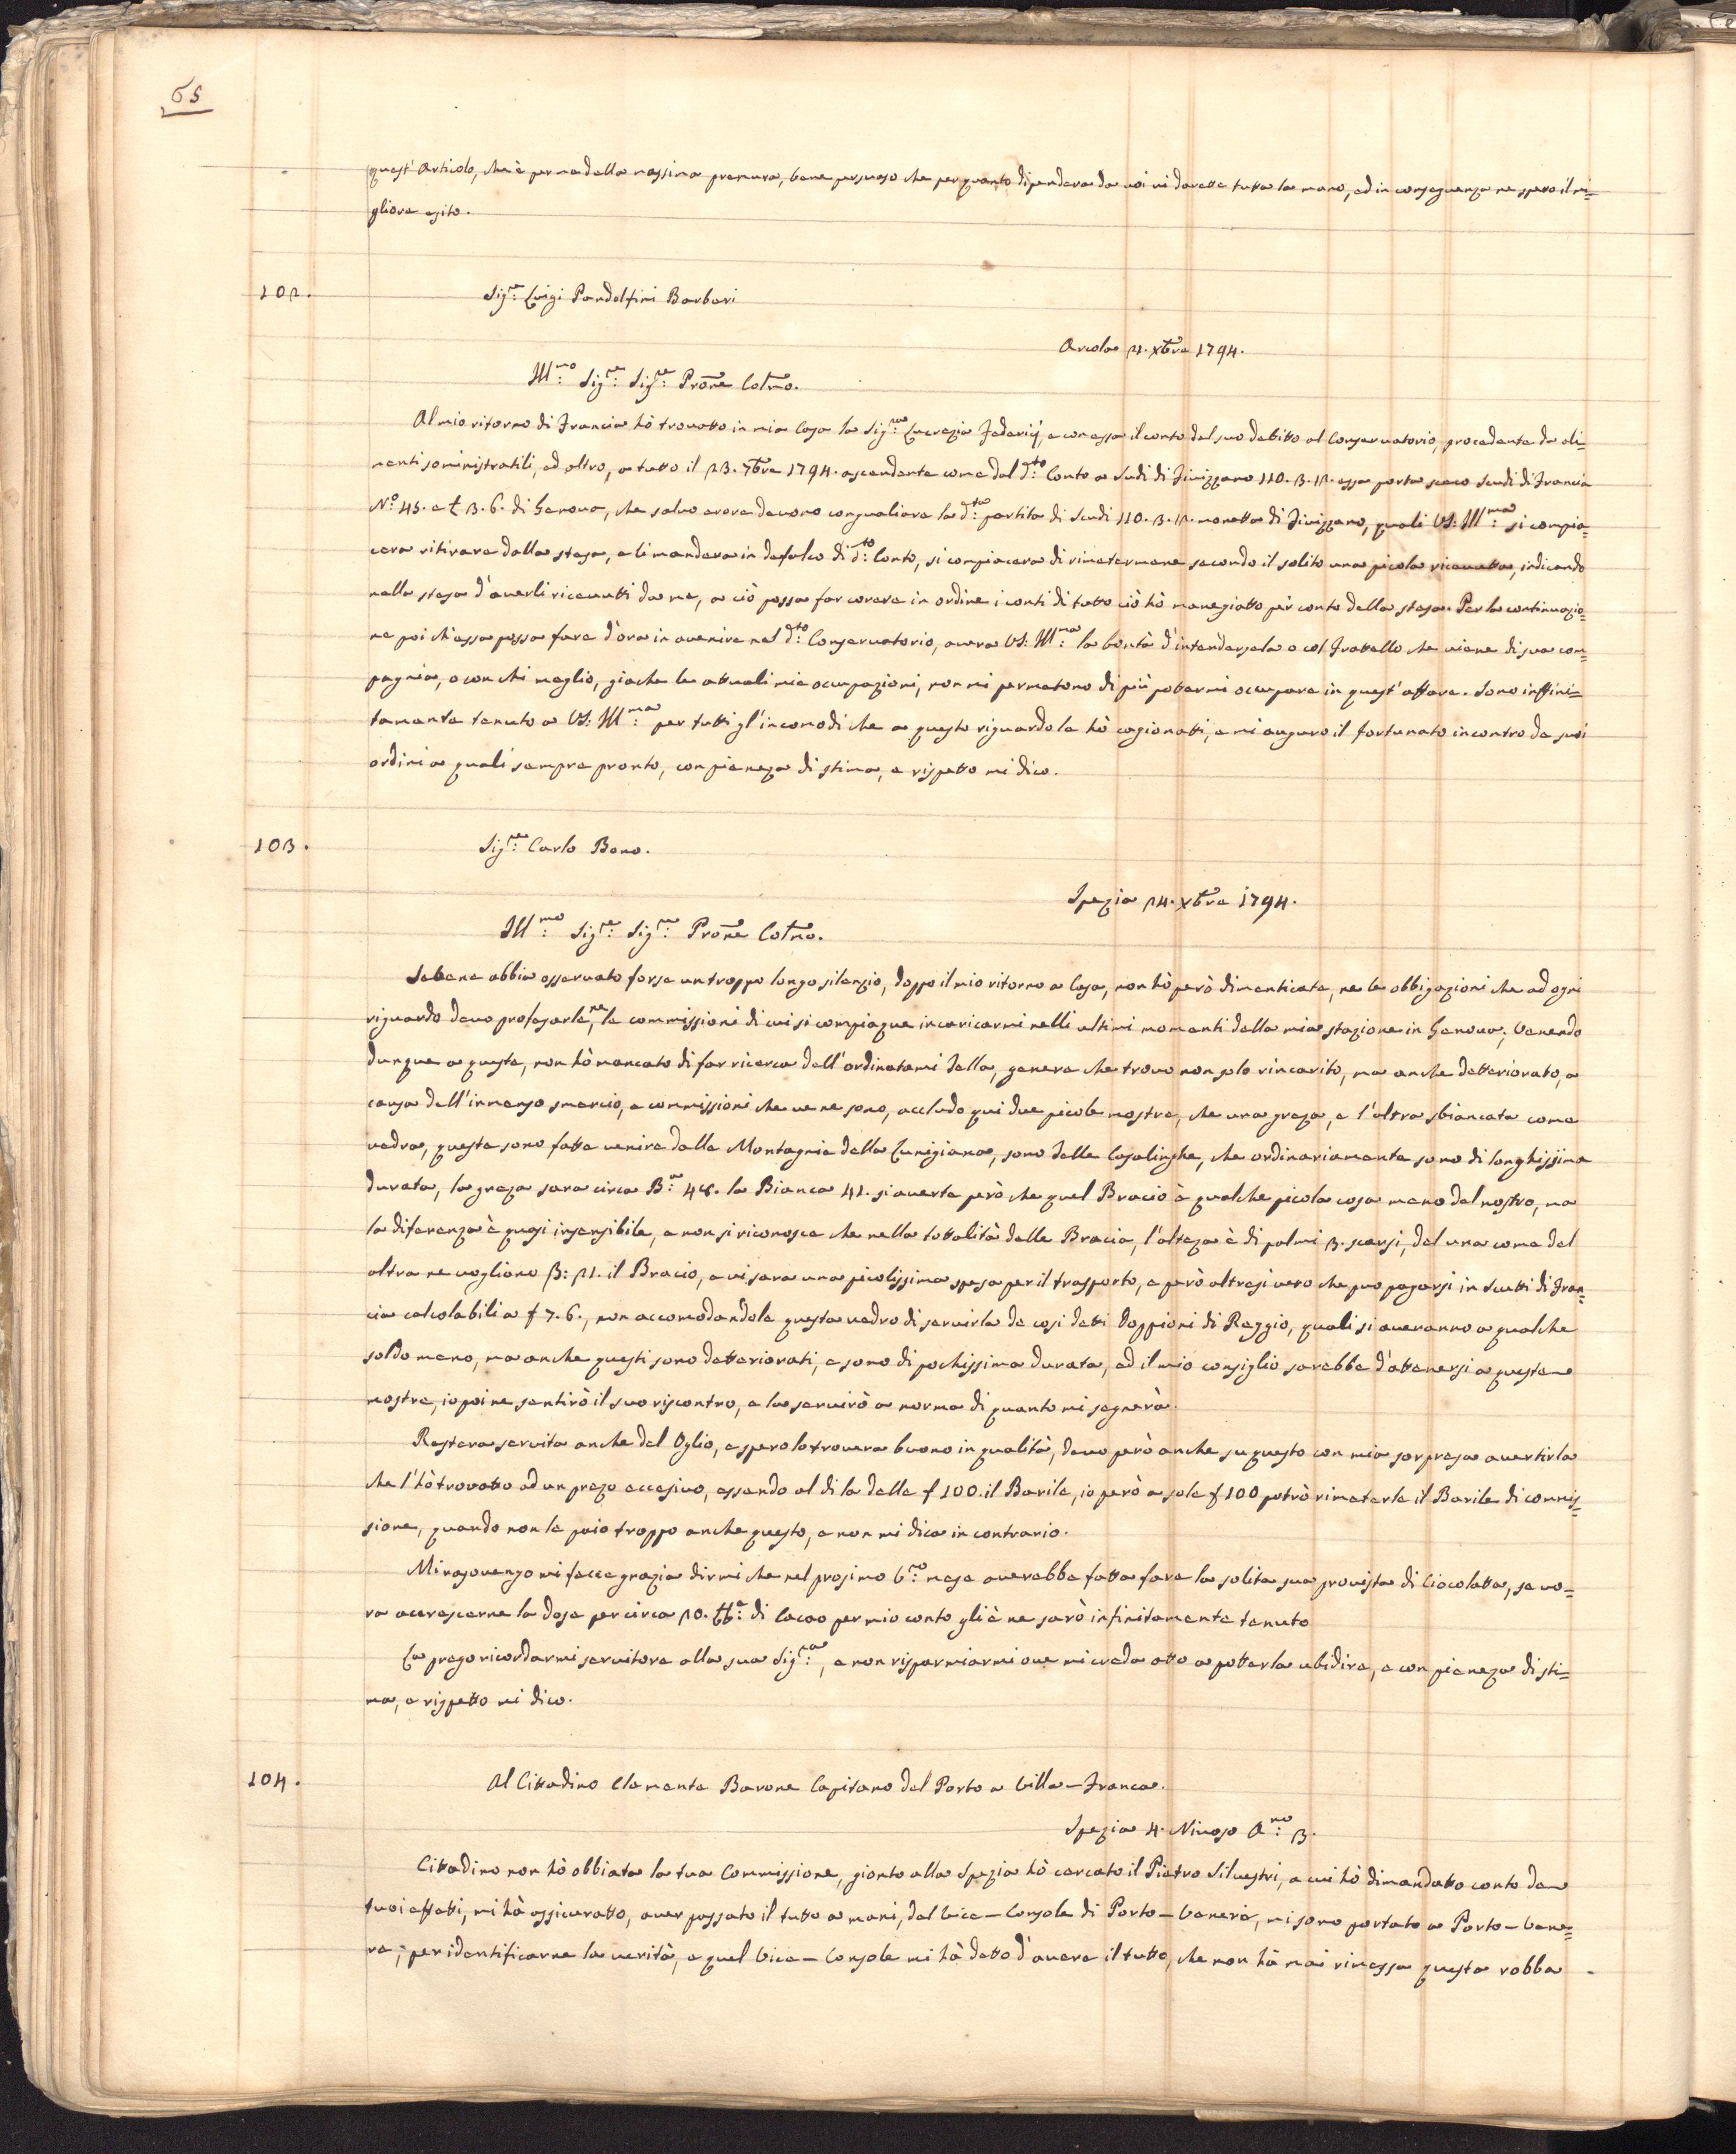 65
quest'Articolo, che è per me della massima premura, bene persuaso che per quanto dipendera da voi vi darette tutta la mano, ed in conseguenza ne spero il mi=
gliore esito.
102.
Sig.re Luigi Pandolfini Barbari
Arcola 21. Xbre 1794.
Ill.mo Sig.re Sig.re Prone Colmo.
Al mio ritorno di Francia hò trovatto in mia Casa la Sig.ra Lucrezia Federicj, e con essa il conto del suo debitto al Conservatorio, procedente da ali=
menti soministratili, ed altro, a tutto il 23. 7bre 1794. ascendente come dal d.to Conto a Scudi di Fivizzano 110. 3. 12. essa porta seco Scudi di Francia
N.o 45. e £ 3. 6. di Genova, che salvo erore devono congualiare la d.ta partita di Scudi 110. 3. 12. monetta di Fivizzano, quali VS: Ill.ma si compia=
cera ritirare dalla stessa, e li mandera in defalco di d.to Conto, si compiacera di rimetermene secondo il solito una picola ricevutta, indicando
nella stessa d'averli ricevutti da me, a ciò possa far corere in ordine i conti di tutto ciò hò manegiatto per conto della stessa. Per la continuazio=
ne poi ch'essa possa fare d'ora in avenire nel d.to Conservatorio, avera VS: Ill.ma la bontà d'intendersela o col Fratello che viene di sua com=
pagnia, o con chi meglio, giache le attuali mie ocupazioni, non mi permetono di più potermi ocupare in quest'affare. Sono inffini=
tamente tenuto a VS: Ill.ma per tutti gl'incomodi che a questo riguardo le hò cagionatti, e mi auguro il fortunato incontro de suoi
ordini a quali sempre pronto, con pieneza di stima, e rispetto mi dico.
103.
Sig.re Carlo Bono.
Spezia 24. Xbre 1794.
Ill.mo Sig.re Sig.re Prone Colmo.
Sebene abbia osservato forse un troppo longo silenzio, doppo il mio ritorno a Casa, non hò però dimenticate, ne le obbigazioni che ad ogni
riguardo devo profesarle, ne le commissioni di cui si compiaque incaricarmi nelli ultimi momenti della mia stazione in Genova; Venendo
dunque a queste, non hò mancato di far ricerca dell'ordinatami Tella, genere che trovo non solo rincarito, ma anche detteriorato, a
causa dell'immenso smercio, e commissioni che ve ne sono, accludo qui due picole mostre, che una greza, e l'altra sbiancata come
vedra, queste sono fatte venire dalle Montagnie della Lunigiana, sono delle Casalinghe, che ordinariamente sono di longhissima
durata, la greza sara circa B.a 48. la Bianca 41. si averta però che quel Bracio è qualche picola cosa meno del nostro, ma
la diferenza è quasi insensibile, e non si riconosce che nella tottalità delle Bracia, l'alteza è di palmi 3. scarsi, del una come del
altra ne vogliono β: 21. il Bracio, e vi sara una picolissima spesa per il trasporto, e però altresi vero che puo pagarsi in Scutti di Fran=
cia calcolabili a £ 7. 6., non accomodandole questa vedro di servirla de cosi detti Doppioni di Reggio, quali si averanno a qualche
soldo meno, ma anche questi sono detteriorati, e sono di pochissima durata, ed il mio consiglio sarebbe d'attenersi a queste
mostre, io poi ne sentirò il suo riscontro, e la servirò a norma di quanto mi segnerà.
Restera servita anche del Oglio, e spero lo trovera buono in qualità, devo però anche su questo con mia sorpresa avertirla
che l'hò trovatto ad un prezo eccesivo, essendo al di la delle £ 100. il Barile, io però a sole £ 100 potrò rimeterle il Barile di commis=
sione, quando non le paio troppo anche questo, e non mi dica in contrario.
Mi rasovengo mi fecce grazia dirmi che nel prosimo G.ro mese averebbe fatta fare la solita sua provista di Ciocolatta, se vo=
ra acerescerne la dose per circa 20. lb.e di Cacao per mio conto gliè ne sarò infinitamente tenuto
La prego ricordarmi servitore alla sua Sig.ra, e non risparmiarmi ove mi creda atto a potterla ubidire, e con pieneza di sti=
ma, e rispetto mi dico.
104.
Al Cittadino Clemente Barone Capitano del Porto a Villa-Franca.
Spezia 4. Nivoso A.no 3.
Cittadino non hò obbiata la tua Commissione, gionto alla Spezia hò cercato il Pietro Silvestri, a cui hò dimandatto conto de
tuoi effetti, mi hà assicuratto, aver passato il tutto a mani, del Vice-Console di Porto-Venere, mi sono portato a Porto-Vene=
re, per identificarne la verità, e quel Vice-Console mi hà detto d'avere il tutto, che non hà mai rimessa questa robba